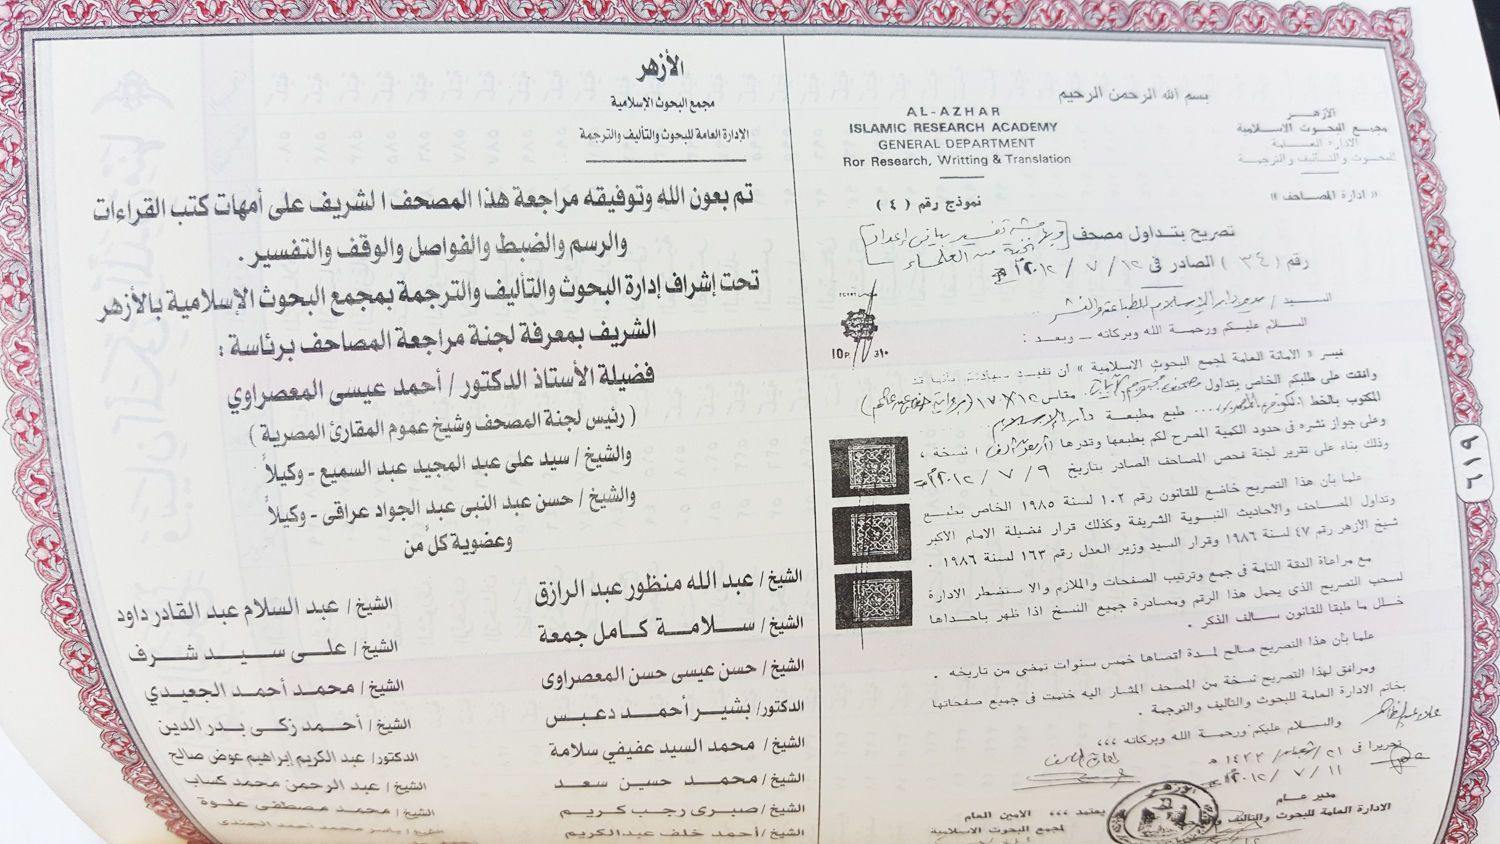 بسم الله الرحمن الرحيم
الأزهر
مجمع البحوث الاسلامية
الادارة العامة
للبحوث والتأليف والترجمة
AL-AZHAR
ISLAMIC RESEARCH ACADEMY
GENERAL DEPARTMENT
Ror Research, Writting & Translation
« ادارة المصاحف »
نموذج رقم ( ٤ )
تصريح بتداول مصحف
رقم ( ٣٤ ) الصادر فى ١٢ / ٧ / ٢٠١٢
السيد / مدير دار الإسلام للطباعة والنشر
السلام عليكم ورحمة الله وبركاته – وبعد :
تيسر « الامانة العامة لمجمع البحوث الاسلامية » أن تفيد سيادتكم بأنها قد
وافقت على طلبكم الخاص بتداول مصحف مقاس ١٢ X ١٧
المكتوب بالخط طبع مطبعة دار الإسلام
وعلى جواز نشره فى حدود الكمية المصرح لكم بطبعها وقدرها نسخة ،
وذلك بناء على تقرير لجنة فحص المصاحف الصادر بتاريخ ٩ / ٧ / ٢٠١٢
علما بأن هذا التصريح خاضع للقانون رقم ١٠٢ لسنة ١٩٨٥ الخاص بطبع
وتداول المصاحف والاحاديث النبوية الشريفة وكذلك قرار فضيلة الامام الاكبر
شيخ الازهر رقم ٤٧ لسنة ١٩٨٦ وقرار السيد وزير العدل رقم ١٦٣ لسنة ١٩٨٦ .
مع مراعاة الدقة التامة فى جمع وترتيب الصفحات والملازم والا ستضطر الادارة
لسحب التصريح الذى يحمل هذا الرقم ومصادرة جميع النسخ اذا ظهر باحداها
خلل ما طبقا للقانون سالف الذكر .
علما بأن هذا التصريح صالح لمدة أقصاها خمس سنوات تمضى من تاريخه .
ومرافق لهذا التصريح نسخة من المصحف المشار اليه ختمت فى جميع صفحاتها
بخاتم الادارة العامة للبحوث والتأليف والترجمة .
والسلام عليكم ورحمة الله وبركاته ،،،
تحريرا فى ٢١ / شعبان / ١٤٣٣ هـ
١١ / ٧ / ٢٠١٢
مدير عام
الادارة العامة للبحوث والتأليف والترجمة
يعتمد ،،، الامين العام
لمجمع البحوث الاسلامية
الأزهر
10P.
٦١٩
الأزهر
مجمع البحوث الإسلامية
الإدارة العامة للبحوث والتأليف والترجمة
تم بعون الله وتوفيقه مراجعة هذا المصحف الشريف على أمهات كتب القراءات
والرسم والضبط والفواصل والوقف والتفسير .
تحت إشراف إدارة البحوث والتأليف والترجمة بمجمع البحوث الإسلامية بالأزهر
الشريف بمعرفة لجنة مراجعة المصاحف برئاسة :
فضيلة الأستاذ الدكتور / أحمد عيسى المعصراوي
( رئيس لجنة المصحف وشيخ عموم المقارئ المصرية )
والشيخ / سيد على عبد المجيد عبد السميع - وكيلاً
والشيخ / حسن عبد النبى عبد الجواد عراقى - وكيلاً
وعضوية كلٌ من
الشيخ / عبد الله منظور عبد الرازق
الشيخ / عبد السلام عبد القادر داود
الشيخ / سلامة كامل جمعة
الشيخ / على سيد شرف
الشيخ / حسن عيسى حسن المعصراوى
الشيخ / محمد أحمد الجعيدي
الدكتور / بشير أحمد دعبس
الشيخ / أحمد زكى بدر الدين
الشيخ / محمد السيد عفيفي سلامة
الدكتور / عبد الكريم إبراهيم عوض صالح
الشيخ / محمد حسين سعد
الشيخ / عبد الرحمن محمد كساب
الشيخ / صبرى رجب كريم
الشيخ / محمد مصطفى علوة
الشيخ / أحمد خلف عبدالكريم
الشيخ / ياسر محمد أحمد الجندى